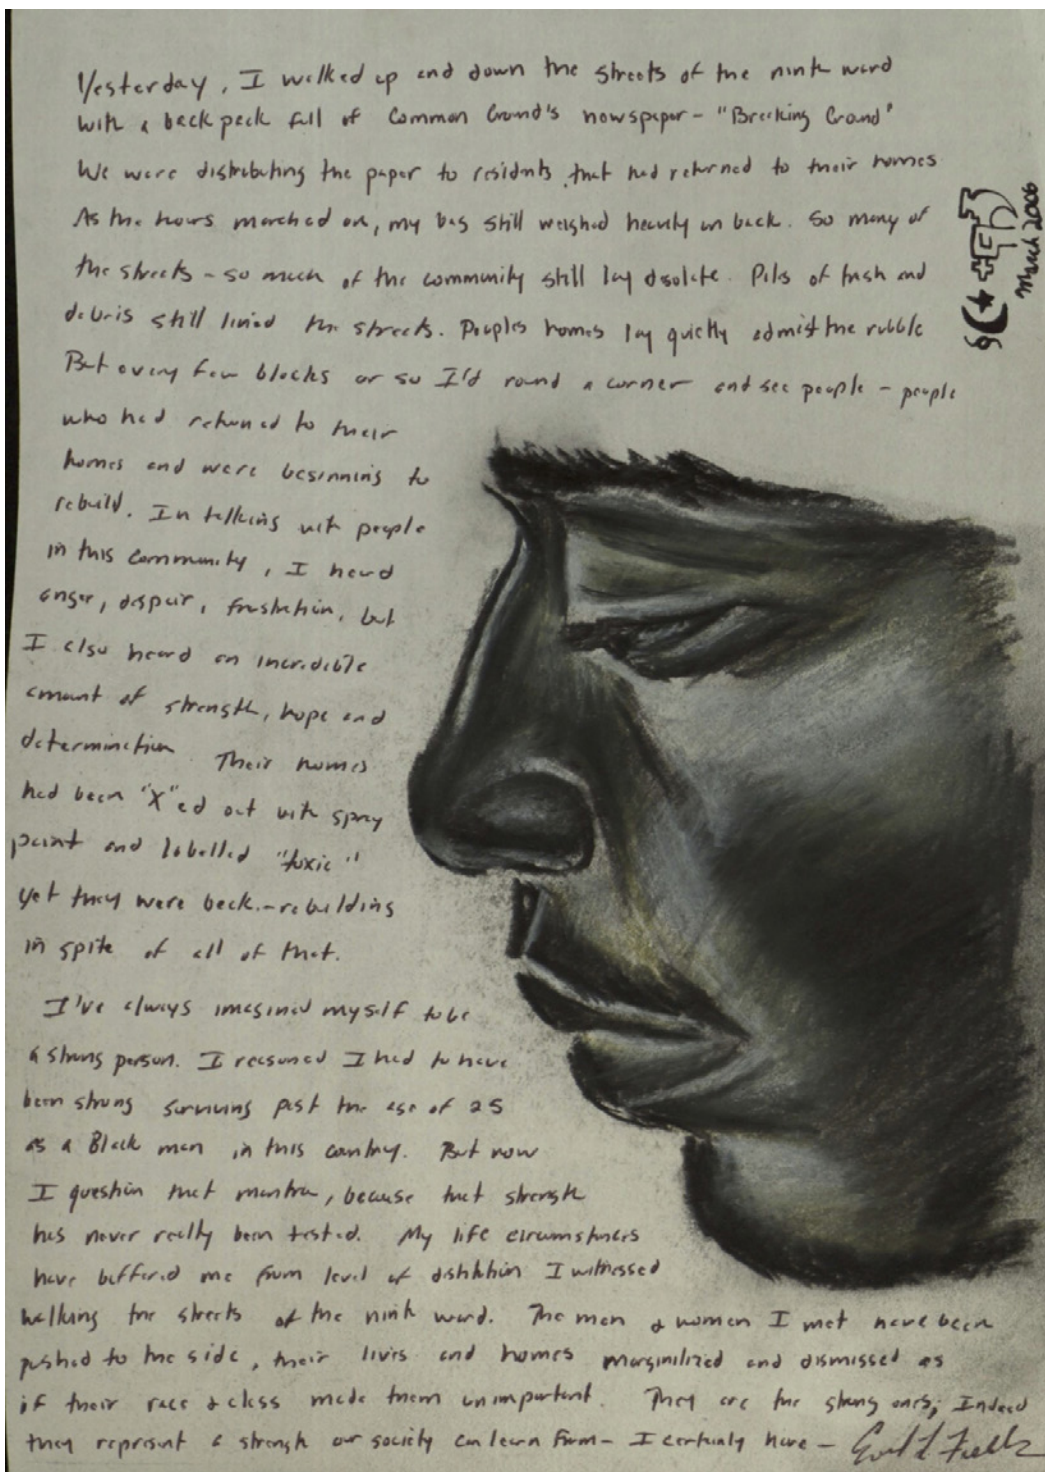 Yesterday, I walked up and down the streets of the ninth ward
with a backpack full of Common Ground's newspaper - "Breaking Ground"
We were distributing the paper to residents that had returned to their homes
As the hours marched on, my bag still weighed heavily on back. So many of
the streets - so much of the community still lay desolate. Piles of trash and
debris still lined the streets. Peoples homes lay quietly admist the rubble
But every few blocks or so I'd round a corner and see people - people
who had returned to their
homes and were beginning to
rebuild. In talking with people
in this community, I heard
anger, despair, frustration, but
I also heard an incredible
amount of strength, hope and
determination Their homes
had been "X"ed out with spray
paint and labelled "toxic"
yet they were back - rebuilding
in spite of all of that.
I've always imagined myself to be
a strong person. I reasoned I had to have
been strong surviving past the age of 25
as a Black man in this country. But now
I question that mantra, because that strength
has never really been tested. My life circumstances
have buffered me from level of distitution I witnessed
walking the streets of the ninth ward. The men & women I met have been
pushed to the side, their lives and homes marginilized and dismissed as
if their race & class made them unimportant. They are the strong ones; Indeed
they represent a strength our society can learn from - I certainly have -
March 2006